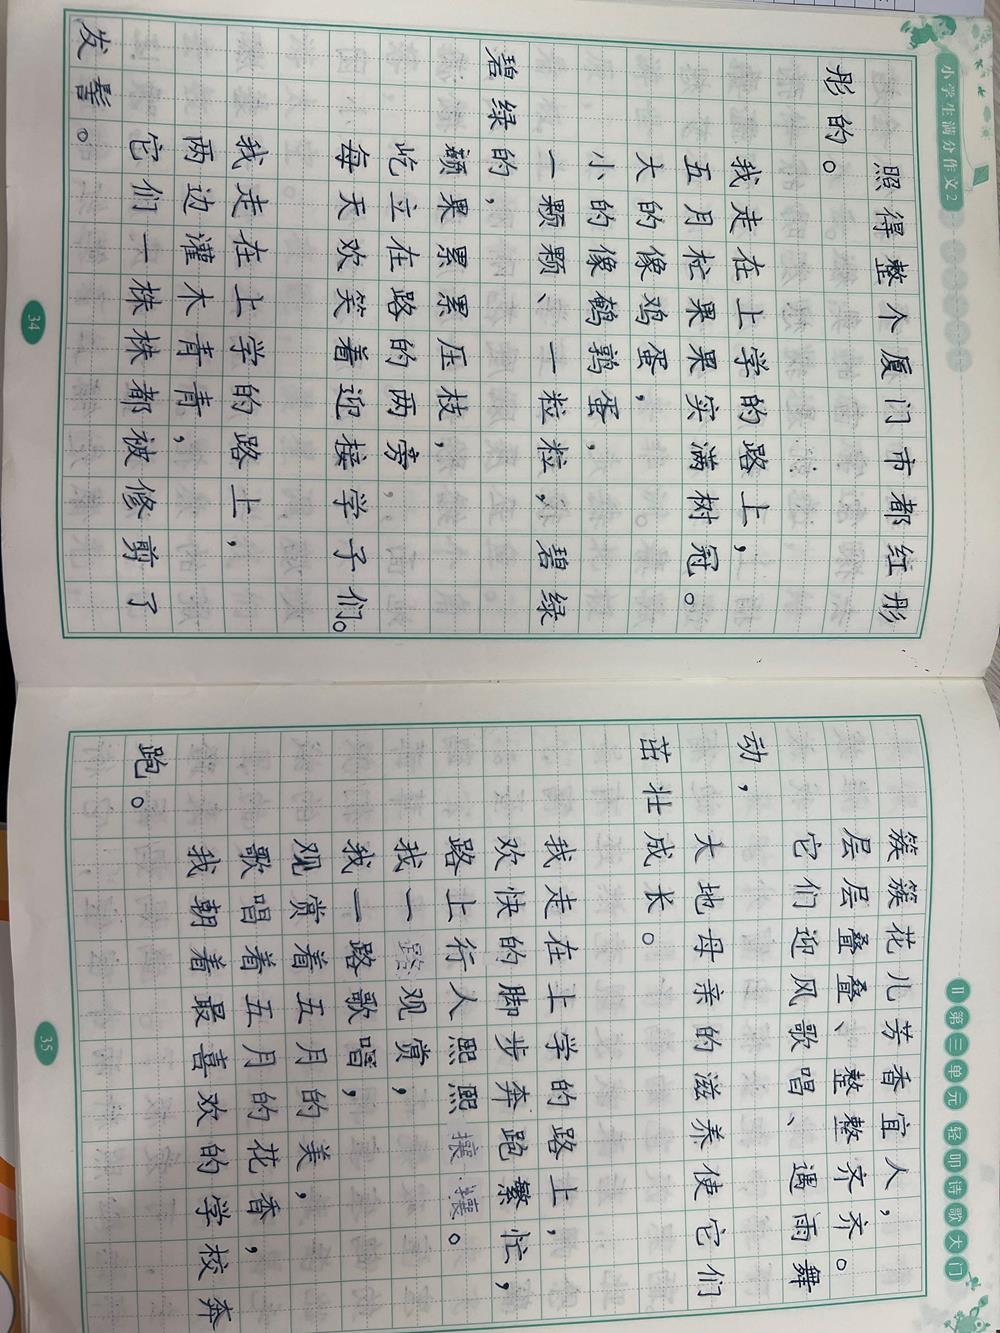 小学生满分作文2
照得整个厦门市都红彤
彤的。
我走在上学的路上，
五月杧果果实满树冠。
大的像鸡蛋，
小的像鹌鹑蛋，
一颗颗、一粒粒，碧绿
碧绿的，
硕果累累压枝，
屹立在路的两旁，
每天欢笑着迎接学子们。
我走在上学的路上，
两边灌木青青，
它们一株株都被修剪了
发髻。
34
II 第三单元 轻叩诗歌大门
簇簇花儿芳香宜人，
层层叠叠、整整齐齐。
它们迎风歌唱、遇雨舞
动，
大地母亲的滋养使它们
茁壮成长。
我走在上学的路上，
欢快的脚步奔跑繁忙，
路上行人熙熙攘攘。
我一路观赏，
我一路歌唱，
观赏着五月的美，
歌唱着五月的花香，
我朝着最喜欢的学校奔
跑。
35